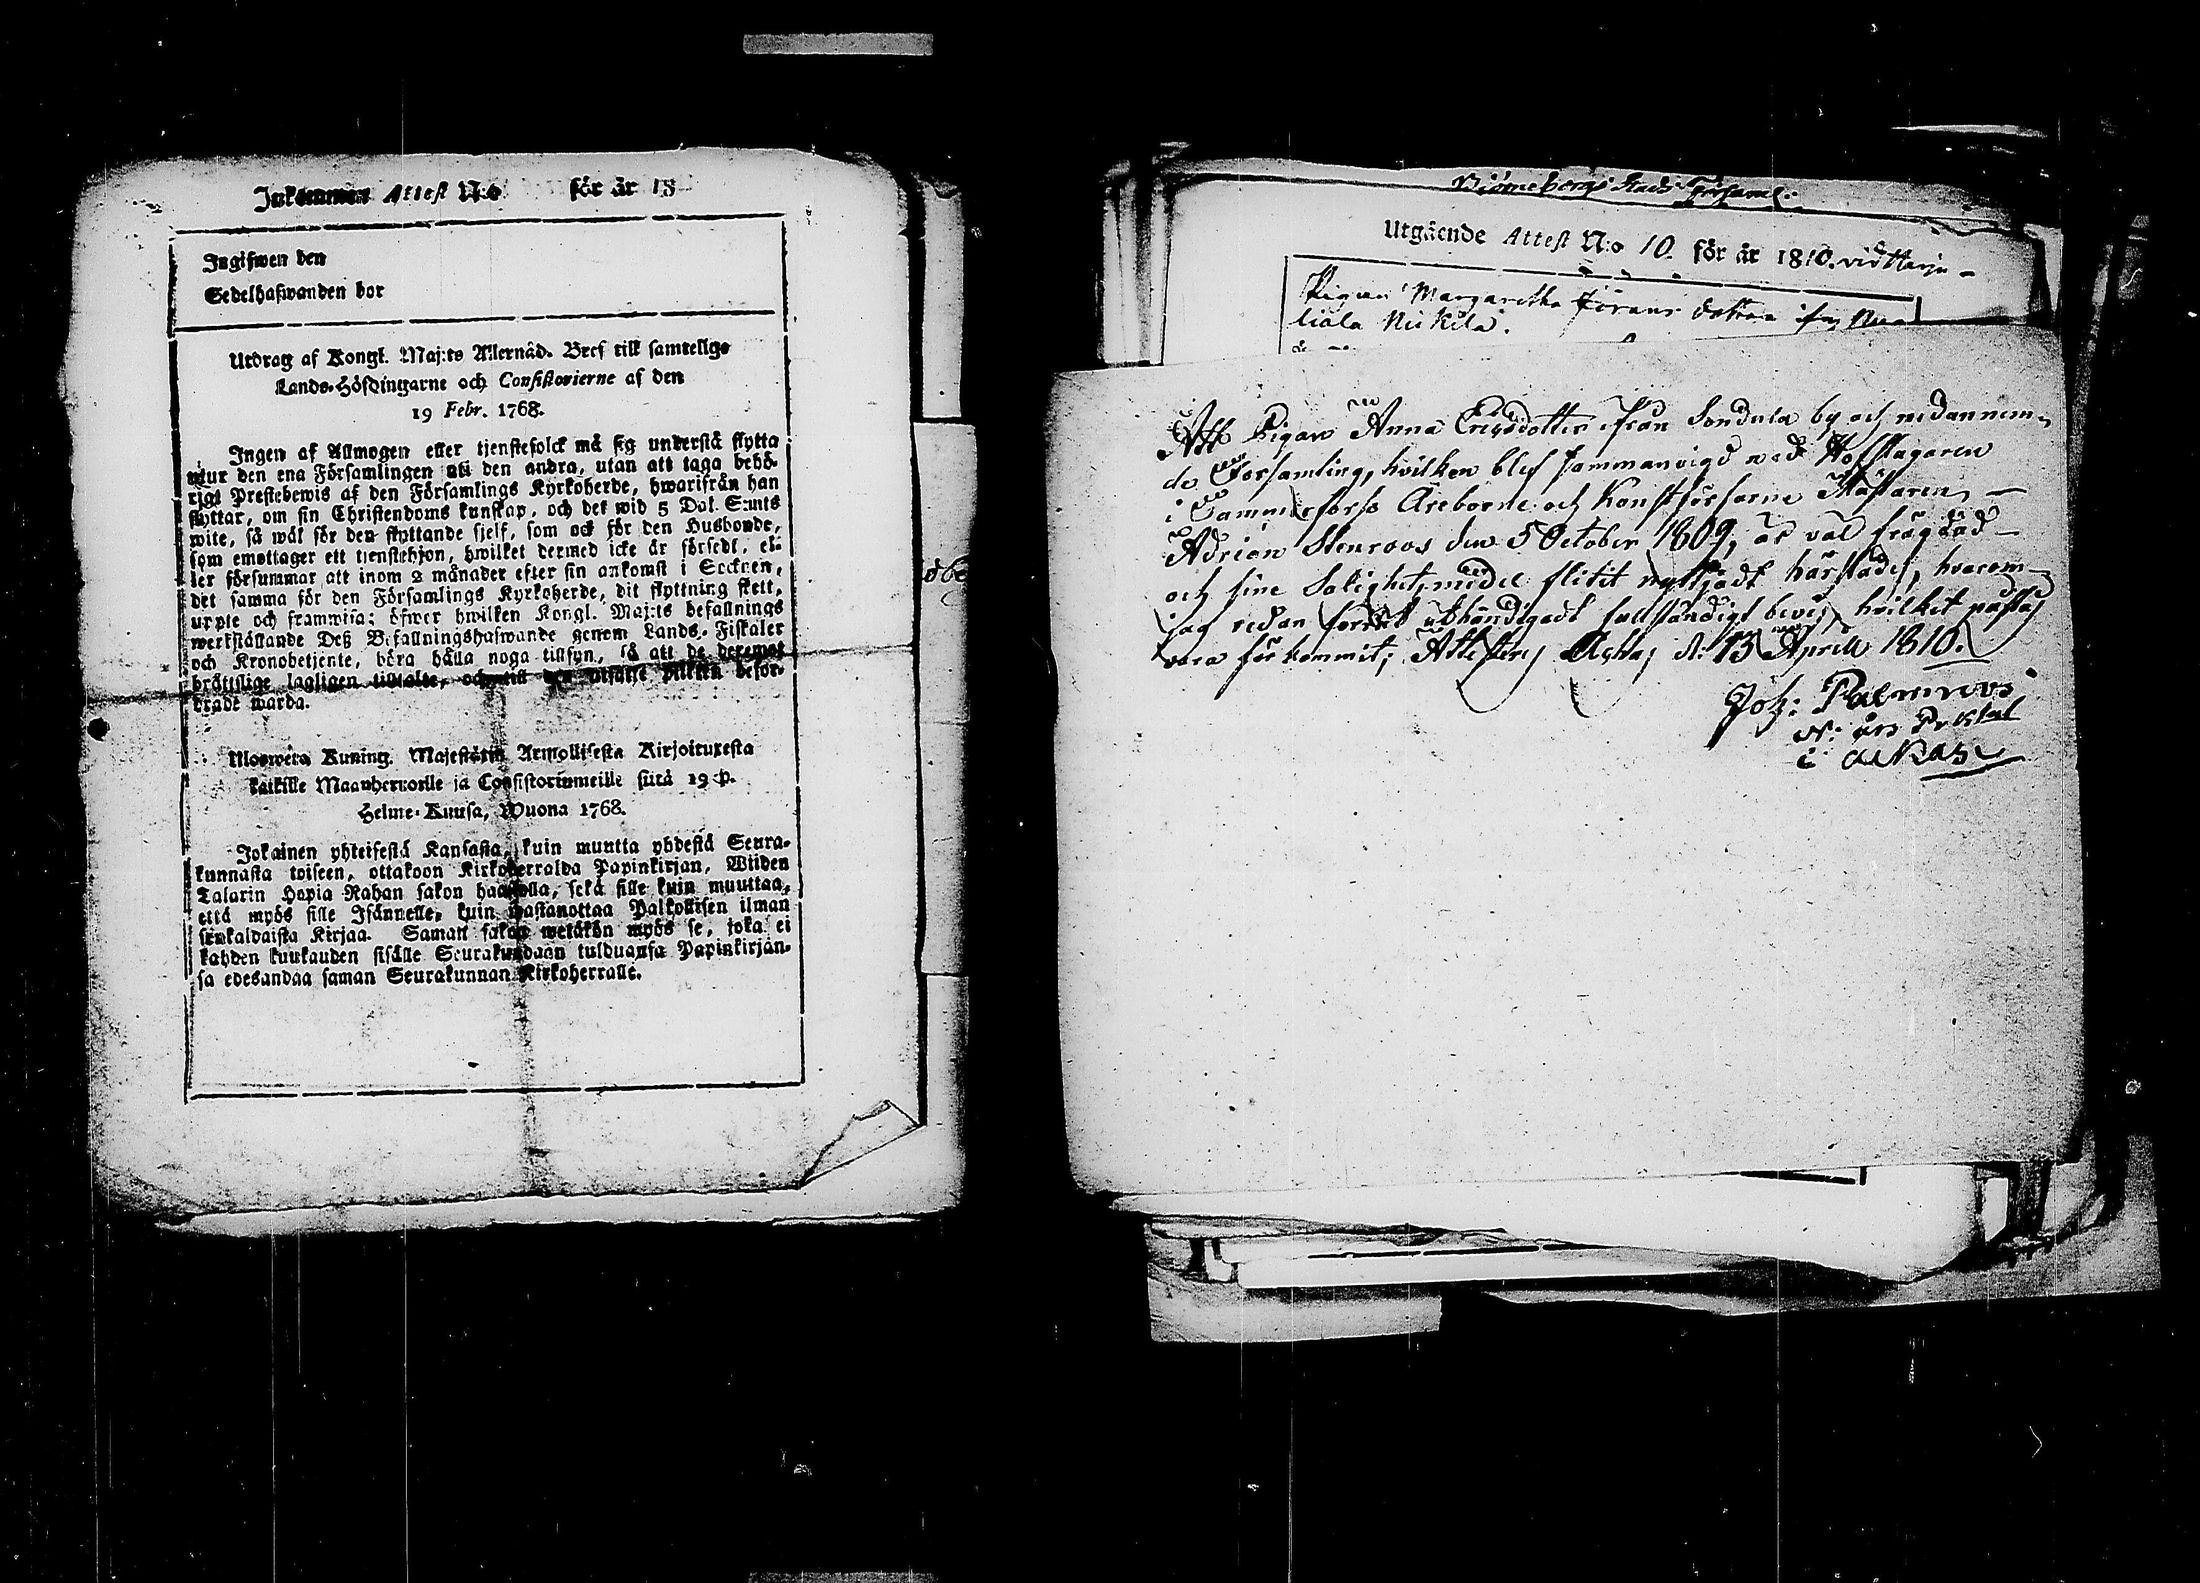 Inkommen Attest N:o för år 18
Ingifwen den
Sedelhafwanden bor
Utdrag af Kongl. Maj:ts Allernåd. Bref till samtelige
Lands-Höfdingarne och Consistorierne af den
19 Febr. 1768.
Ingen af Allmogen eller tjenstefolck må sig understå flytta
utur den ena Församlingen uti den andra, utan att taga behö-
rigt Prestebewis af den Församlings Kyrkoherde, hwarifrån han
flyttar, om sin Christendoms kunskap, och det wid 5 Dal. S:mts
wite, så wäl för den flyttande sjelf, som ock för den Husbonde,
som emottager ett tjenstehjon, hwilket dermed icke är försedt, el-
ler försummar att inom 2 månader efter sin ankomst i Socknen,
det samma för den Församlings Kyrkoherde, dit flyttning skett,
uppte och framwisa; öfwer hwilken Kongl. Maj:ts befallnings
werkställande Deß Befallningshafwande genom Lands-Fiskaler
och Kronobetjente, böra hålla noga tillsyn, så att de deremot
bråttslige lagligen tilltalte, och till den utsatte plikten befor-
drade warda.
Uloswetä Kuning. Majestätin Armollisesta Kirjoituxesta
kaikille Maanherroille ja Consistoriumeille siitä 19 p.
Helme-Kuusa, Wuona 1768.
Jokainen yhteisestä Kansasta, kuin muutta yhdestä Seura-
kunnasta toiseen, ottakoon Kirkoherralda Papinkirjan, Wiiden
Talarin Hopia Rahan sakon haastolla, sekä sille kuin muuttaa,
että myös sille Isännelle, kuin wastanottaa Palkollisen ilman
senkaldaista Kirjaa. Saman sakon wetäkön myös se, joka ei
kahden kuukauden sisälle Seurakundaan tulduansa Papinkirjan-
sa edesandaa saman Seurakunnan Kirkoherralle.
Biörneborgs Stads Församl:
Utgående Attest N:o 10. för år 1810. vid Harju-
Pigan Margaretha Jörans dotter ifrn
liala Nikkilä.
Att Pigan Anna Ericsdotter ifrån Sondula by och nedannem-
de Forsamling, hvilken blef sammanvigd med Hofslagaren
i Tammerforss Areborne och Konstförfarne Mästaren
Adrian Stenroos den 5 October 1809, är väl frägdad
och sine Salighetsmedel flitit nyttjadt härstädes, hvarom
jag redan förut uthändigadt fullständigt bevis, hvilket påstås
vara förkommit; Attesterej Ackas d: 13 Aprill 1810.
Joh: Palmroos
N: års Prdktal
i Ackas